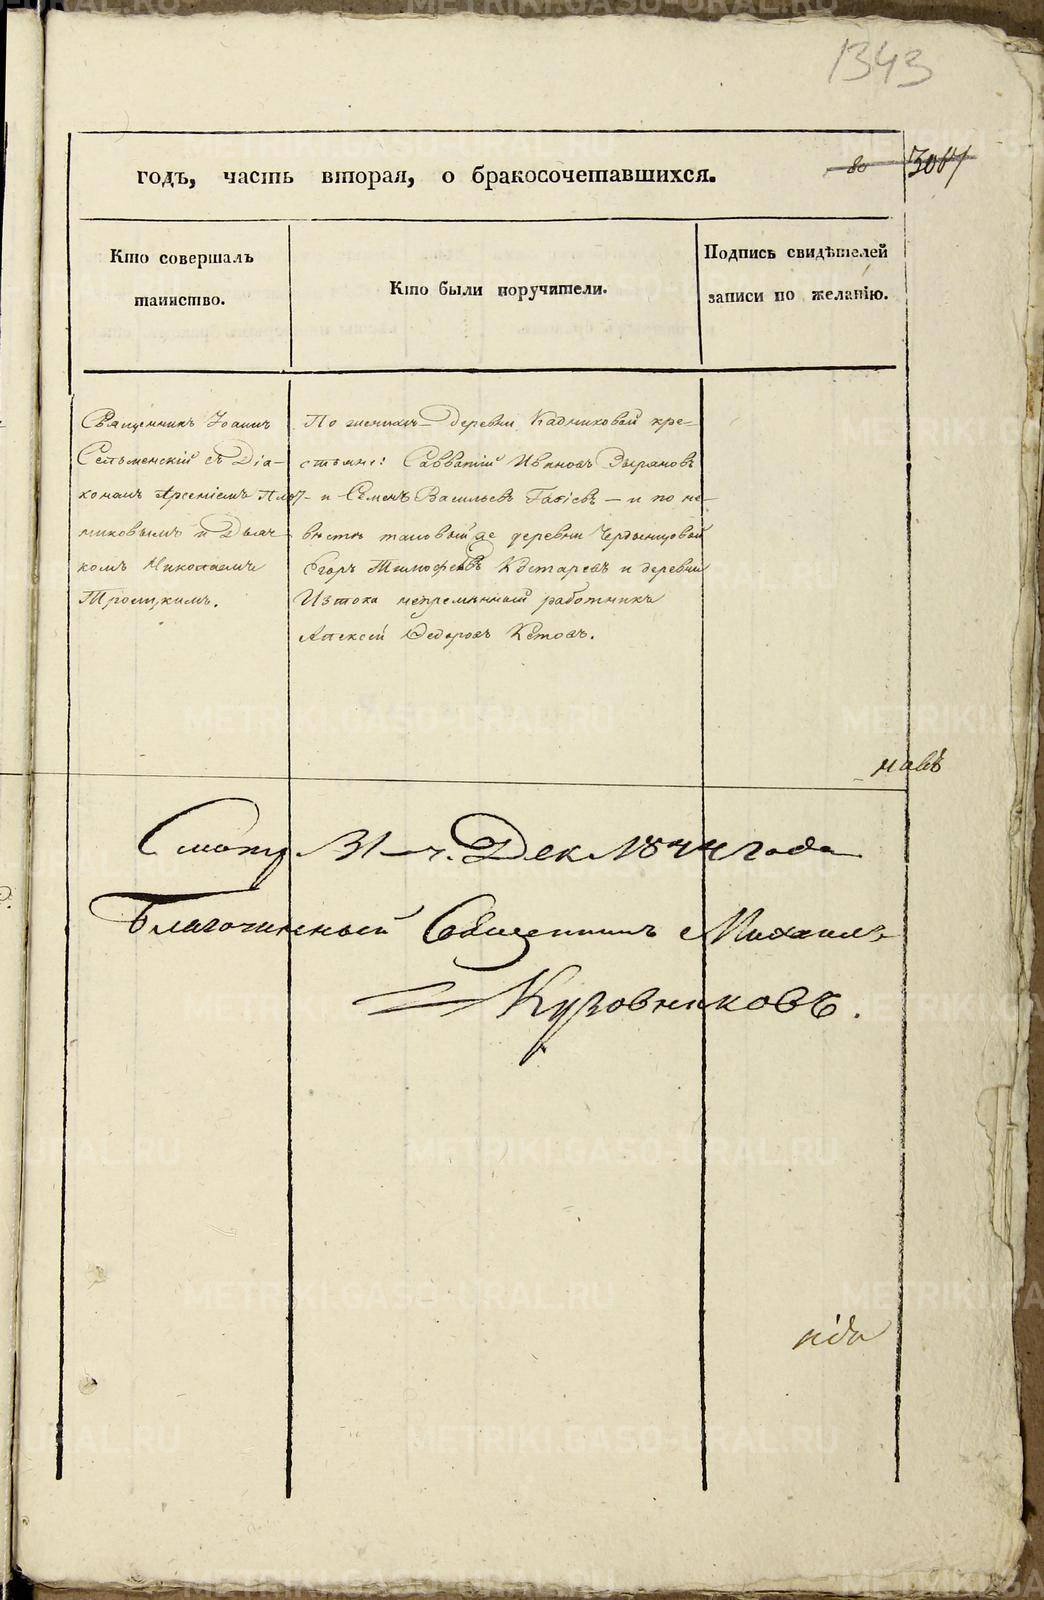 1343
годъ, часть вторая, о бракосочетавшихся.
80
Кто совершалъ
таинство.
Кто были поручители.
Подпись свидѣтелей
записи по желанію.
Священникъ Іоаннъ
Сельменскій съ Діа-
кономъ Арсеніемъ
и Дьяч-
комъ Николаемъ
Троицкимъ.
По женихѣ деревни Кадниковой кре-
стьяне: Савватій Ивановъ Зыряновъ
и Семенъ Васильевъ — и по не-
вѣстѣ таковый же деревни Чердынцовой
Егоръ Тимофеевъ Костаревъ и деревни
Истока непремѣнный работникъ
Алексѣй Федоровъ Кетовъ.
Смотр. 31 ч. Дек. 1844 года
Благочинный Священникъ Михаилъ
Кузовниковъ.
METRIKI.GASO-URAL.RU